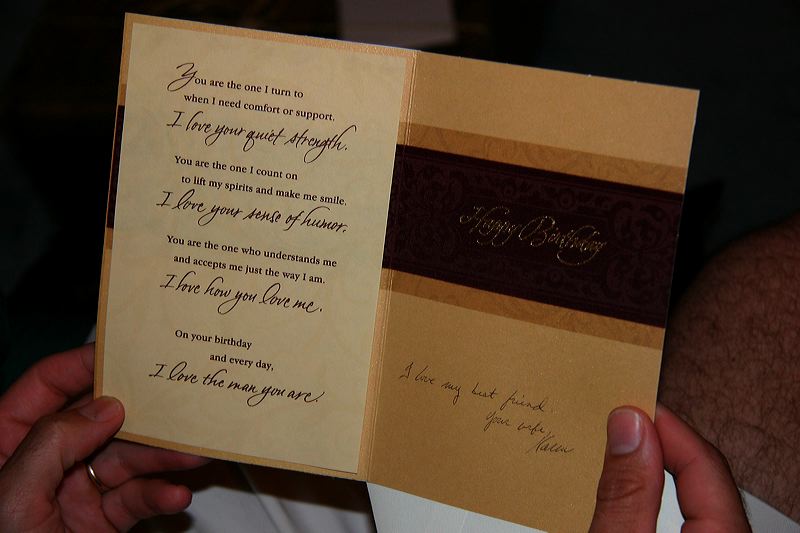 You are the one I turn to
when I need comfort or support.
I love your quiet strength.
You are the one I count on
to lift my spirits and make me smile.
I love your sense of humor.
You are the one who understands me
and accepts me just the way I am.
I love how you love me.
On your birthday
and every day,
I love the man you are.
Happy Birthday
I love my best friend.
Your wife,
Karen